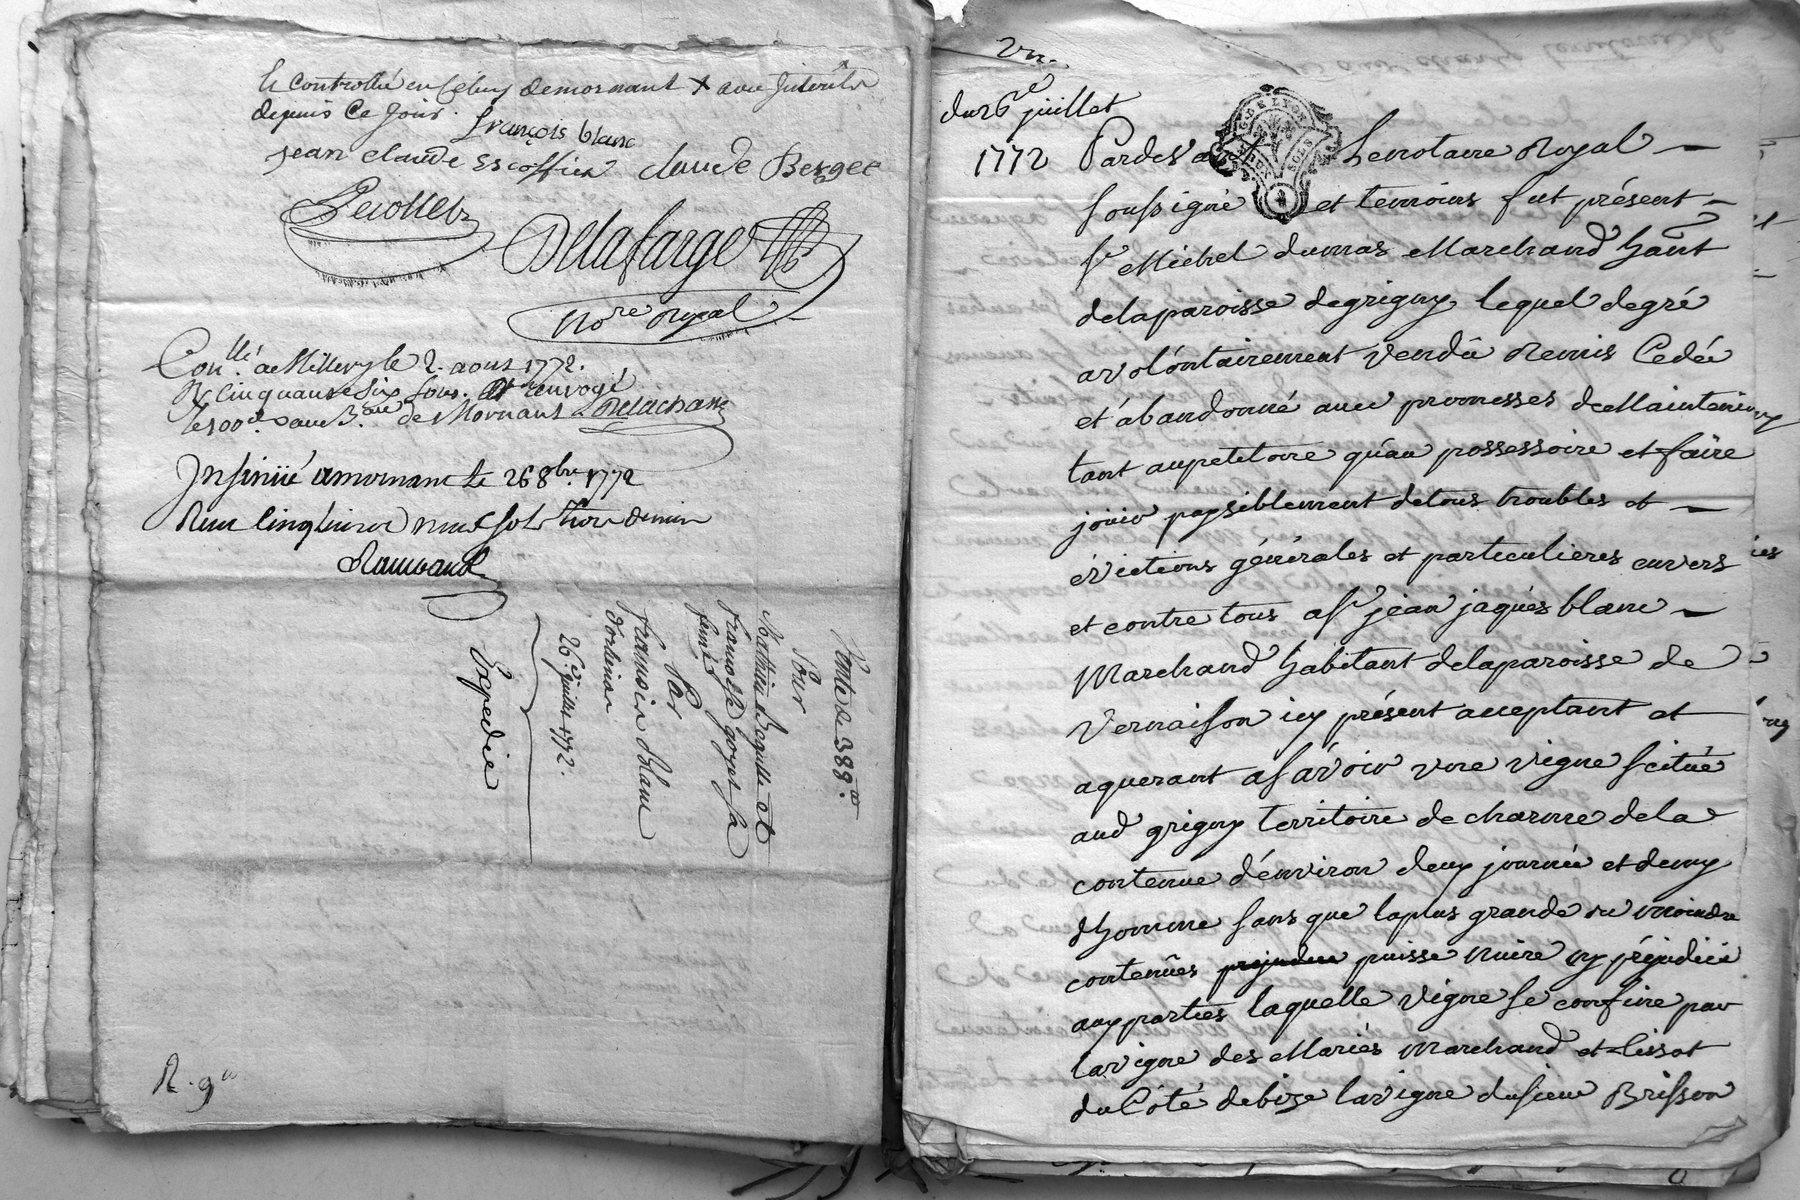 et controllé au bureau de mornant X avec Interets
depuis Ce Jour.
françois blanc
jean claude Escoffier claude Berger
Delafarge
No.re royal
Con.llé a Millery le 2. aout 1772.
R cinquante six sous. et renvoyé
le 100.e de Mornant Delachasse
Insinüé a mornant le 26 8bre. 1772
Reçu cinq livres neuf sols trois deniers
Vente de 389.
Pour
Mathieu et
francoise goyet sa
feme.
Par
francois blanc
d'orlienas
26.e juillet 1772.
Expedié
R. 9
du 26.e juillet
1772 Pardevant Le notaire Royal
G. DE LYON
DEUX SOLS
soussigné et temoins fut présent
s.r Michel dumas Marchand ha͠nt
de la paroisse de grigny lequel de gré
a volóntairement vendû Remis Cedée
et abandonné avec promesses de Maintenir
tant au petitoire qu'au possessoire et faire
joüir paysiblement de tous troubles et
évictions générales et particulieres envers
et contre tous a s.r jean jaqués blanc
Marchand habitant de la paroisse de
Vernaison icy présent acceptant et
aquerant a sávoir une vigne scituée
aud grigny territoire de charme de la
contenue d'énviron deux journée et demy
d'homme sans que la plus grande ou moindre
contenües prejudice puisse nuire ny préjudicié
aux parties laquelle vigne se confine par
la vigne des Mariés Marchand et Cissot
du Côté de bize la vigne du sieur Brisson